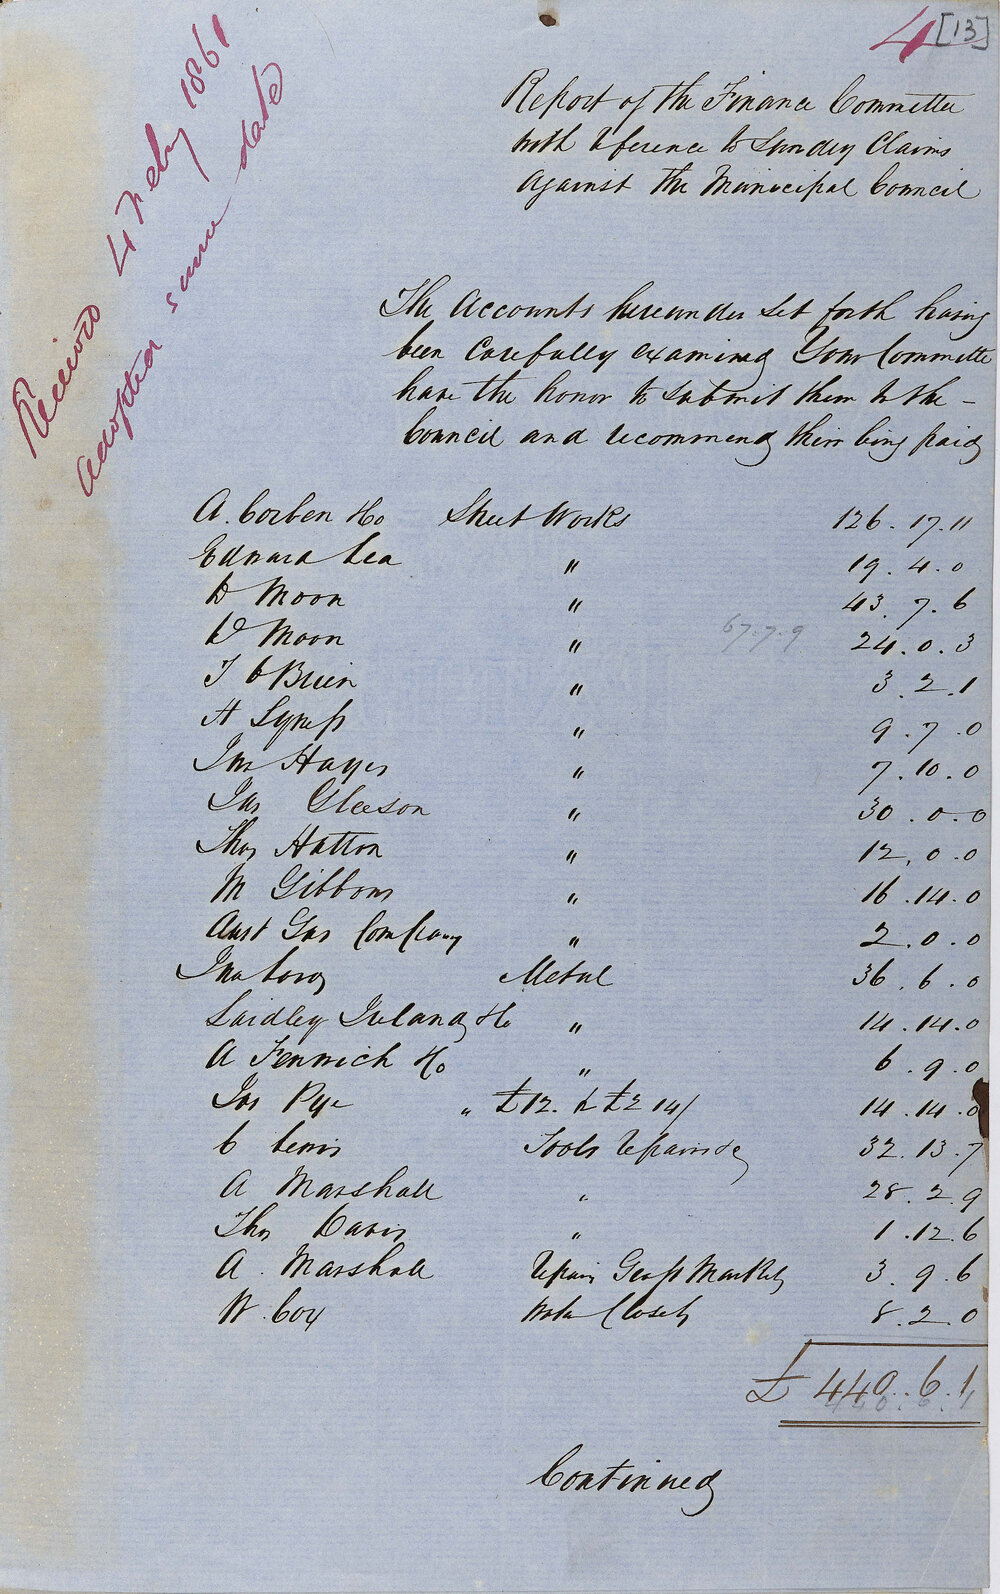 4 [13]
Received 4 Feby 1861
adopted same date
Report of the Finance Committee
with reference to Sundry Claims
Against the Municipal Council
The Accounts hereunder set forth having
been Carefully examined Your Committee
have the honor to submit them to the -
Council and recommend their being paid
A. Corben & Co Street Works 126.17.11
Edward Lea " 19.4.0
D Moon " 43.7.6
D Moon " 67.7.9 24.0.3
T O'Brien " 3.2.1
H Lyness " 9.7.0
Jas Hayes " 7.10.0
Jas Gleeson " 30.0.0
Thos Hatton " 12.0.0
M Gibbons " 16.14.0
Aust Gas Company " 2.0.0
Jno Metal 36.6.0
Laidley Ireland & Co " 14.14.0
A Fenwick & Co " 6.9.0
Jas Pye " £12. & £2 14/ 14.14.0
C Lewis Tools Repairs &c 32.13.7
A Marshall " 28.2.9
Thos Davis " 1.12.6
A. Marshall Repairs Geo St Markets 3.9.6
W. Cox Water Closets 8.2.0
£ 440.6.1
440.6.1
Continued